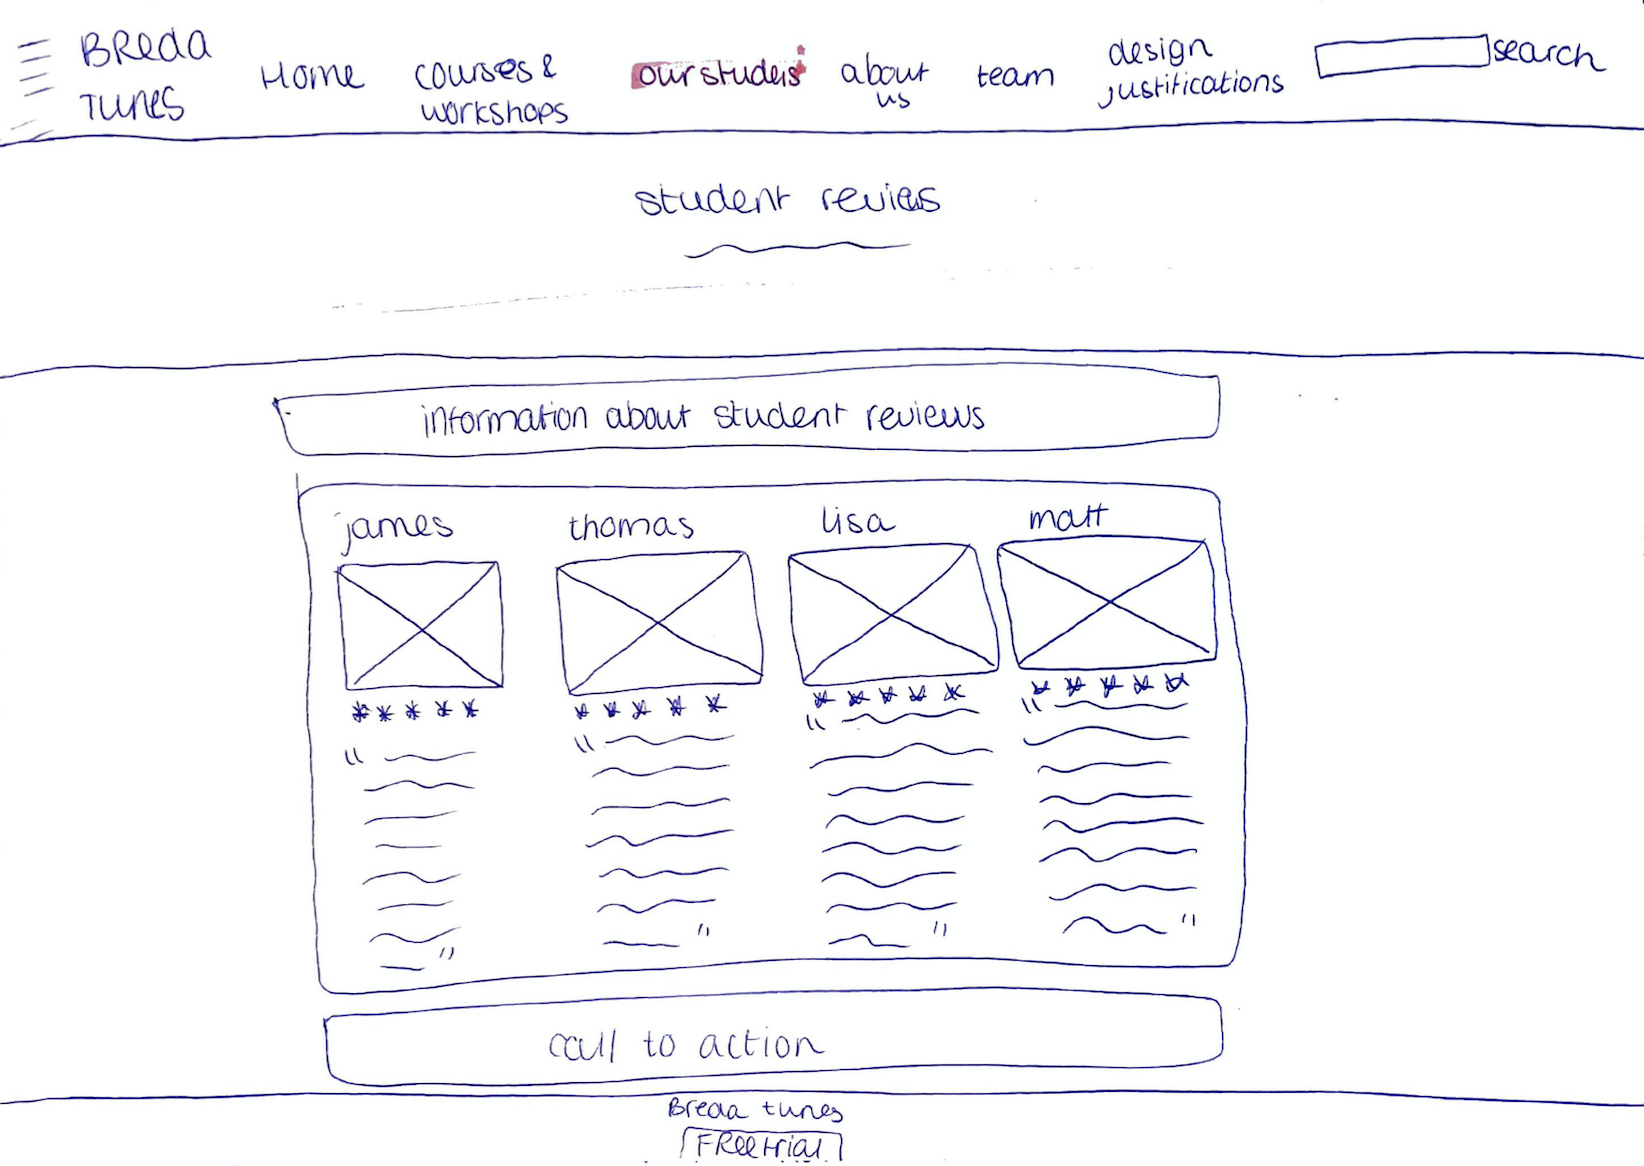 BReda
TUNES
Home
courses &
workshops
our studets
about
us
team
design
justifications
search
student reviews
information about student reviews
james
thomas
lisa
matt
* * * * *
* * * * *
* * * * *
* * * * *
call to action
Breda tunes
FREE trial